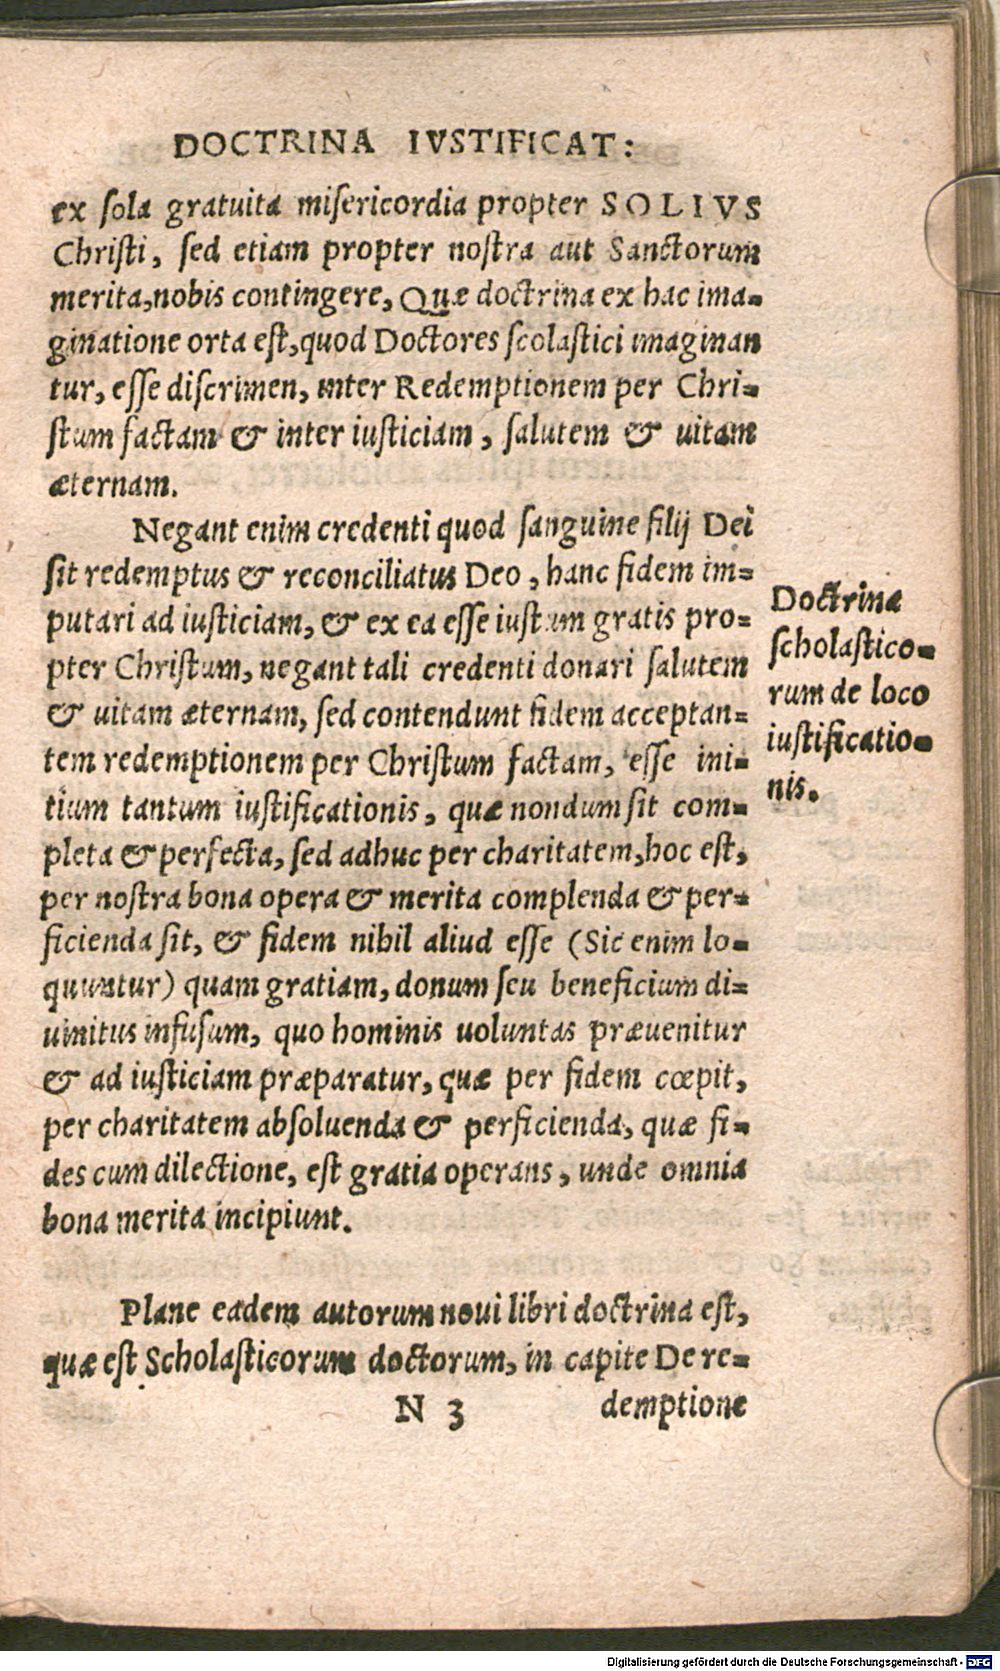 DOCTRINA IVSTIFICAT:
ex sola gratuita misericordia propter SOLIVS
Christi, sed etiam propter nostra aut Sanctorum
merita, nobis contingere, Quæ doctrina ex hac ima=
ginatione orta est, quod Doctores scolastici imaginan
tur, esse discrimen, inter Redemptionem per Chri=
stum factam & inter iusticiam, salutem & uitam
æternam.
Negant enim credenti quod sanguine filij Dei
sit redemptus & reconciliatus Deo, hanc fidem im=
putari ad iusticiam, & ex ea esse iustum gratis pro=
pter Christum, negant tali credenti donari salutem
& uitam æternam, sed contendunt fidem acceptan=
tem redemptionem per Christum factam, esse ini=
tium tantum iustificationis, quæ nondum sit com=
pleta & perfecta, sed adhuc per charitatem, hoc est,
per nostra bona opera & merita complenda & per=
ficienda sit, & fidem nihil aliud esse (Sic enim lo=
quuntur) quam gratiam, donum seu beneficium di=
uinitus infusum, quo hominis uoluntas præuenitur
& ad iusticiam præparatur, quæ per fidem cœpit,
per charitatem absoluenda & perficienda, quæ fi=
des cum dilectione, est gratia operans, unde omnia
bona merita incipiunt.
Doctrina
scholastico=
rum de loco
iustificatio=
nis.
Plane eadem autorum noui libri doctrina est,
quæ est Scholasticorum doctorum, in capite De re=
N 3 demptione
Digitalisierung gefördert durch die Deutsche Forschungsgemeinschaft - DFG